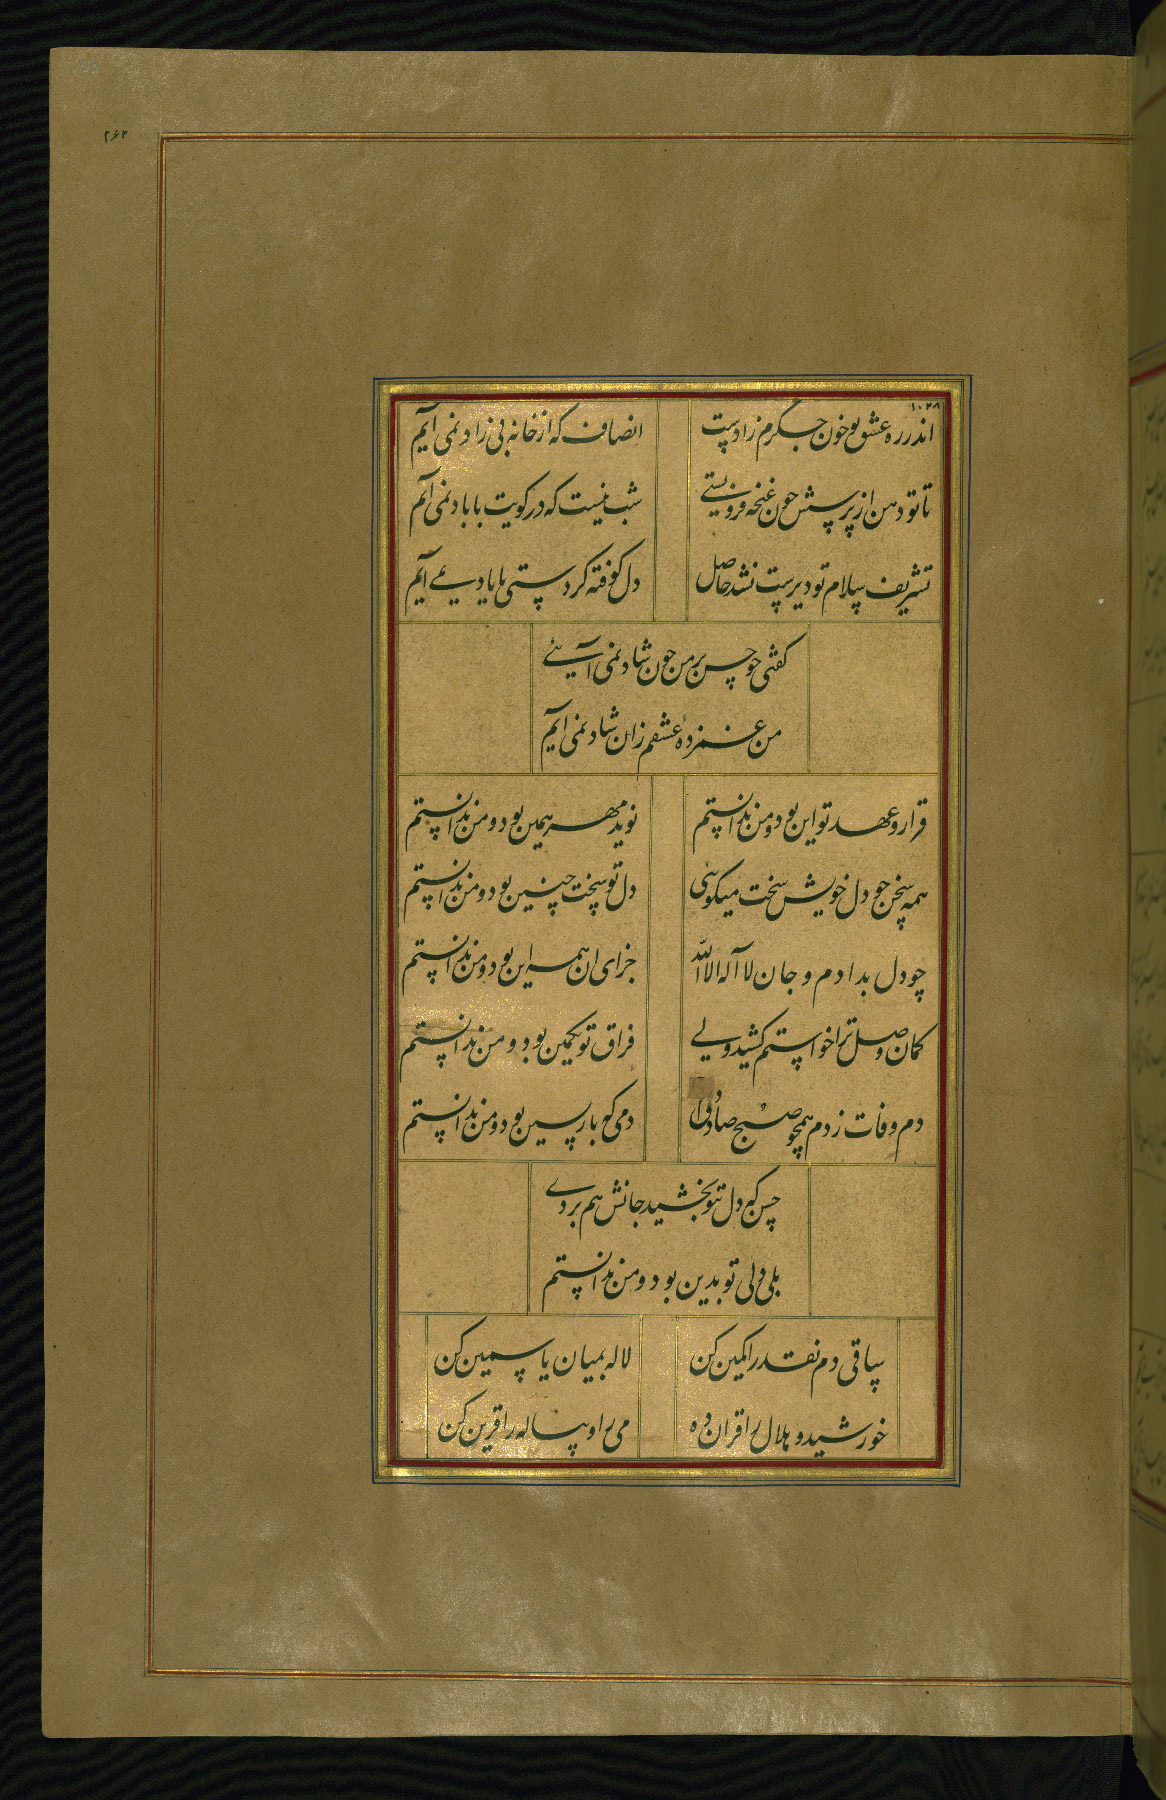 ۲۶۲
۱۰۲۸
اندر ره عشق تو خون جگرم زادست
انصاف که از خانه بی زاد نمی آیم
تا تو دهن از پرسش چون غنچه فرو بستی
شب نیست که در کویت با باد نمی آیم
تشریف سلام تو دیرست نشد حاصل
دل کوفته کردستی با یاد نمی آیم
کفتی چو حسن بر من چون شاد نمی آیی
من غمزدهٔ عشقم زان شاد نمی آیم
قرار و عهد تو این بود و من ندانستم
نوید مهر همین بود و من ندانستم
همه سخن چو دل خویش سخت میکوئی
دل تو سخت چنین بود و من ندانستم
چو دل بدادم و جان لا آله الا الله
جزای ان همه این بود و من ندانستم
کمان وصل ترا خواستم کشید ولی
فراق تو بکمین بود و من ندانستم
دم وفات زدم همچو صبح صادق
دمی که بازپسین بود و من ندانستم
حسن که دل بتو بخشید جانش هم بردی
بلی دلی تو بدین بود و من ندانستم
ساقی دم نقد را کمین کن
لاله بمیان یاسمین کن
خورشید و هلال را قران ده
می را و پیاله را قرین کن